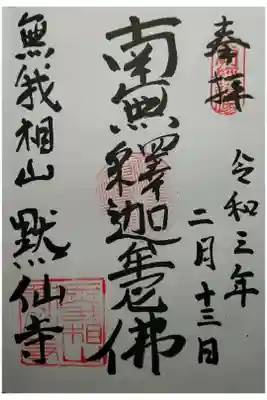 奉拝
令和三年
二月十三日
南無釋迦牟尼佛
無我相山 黙仙寺